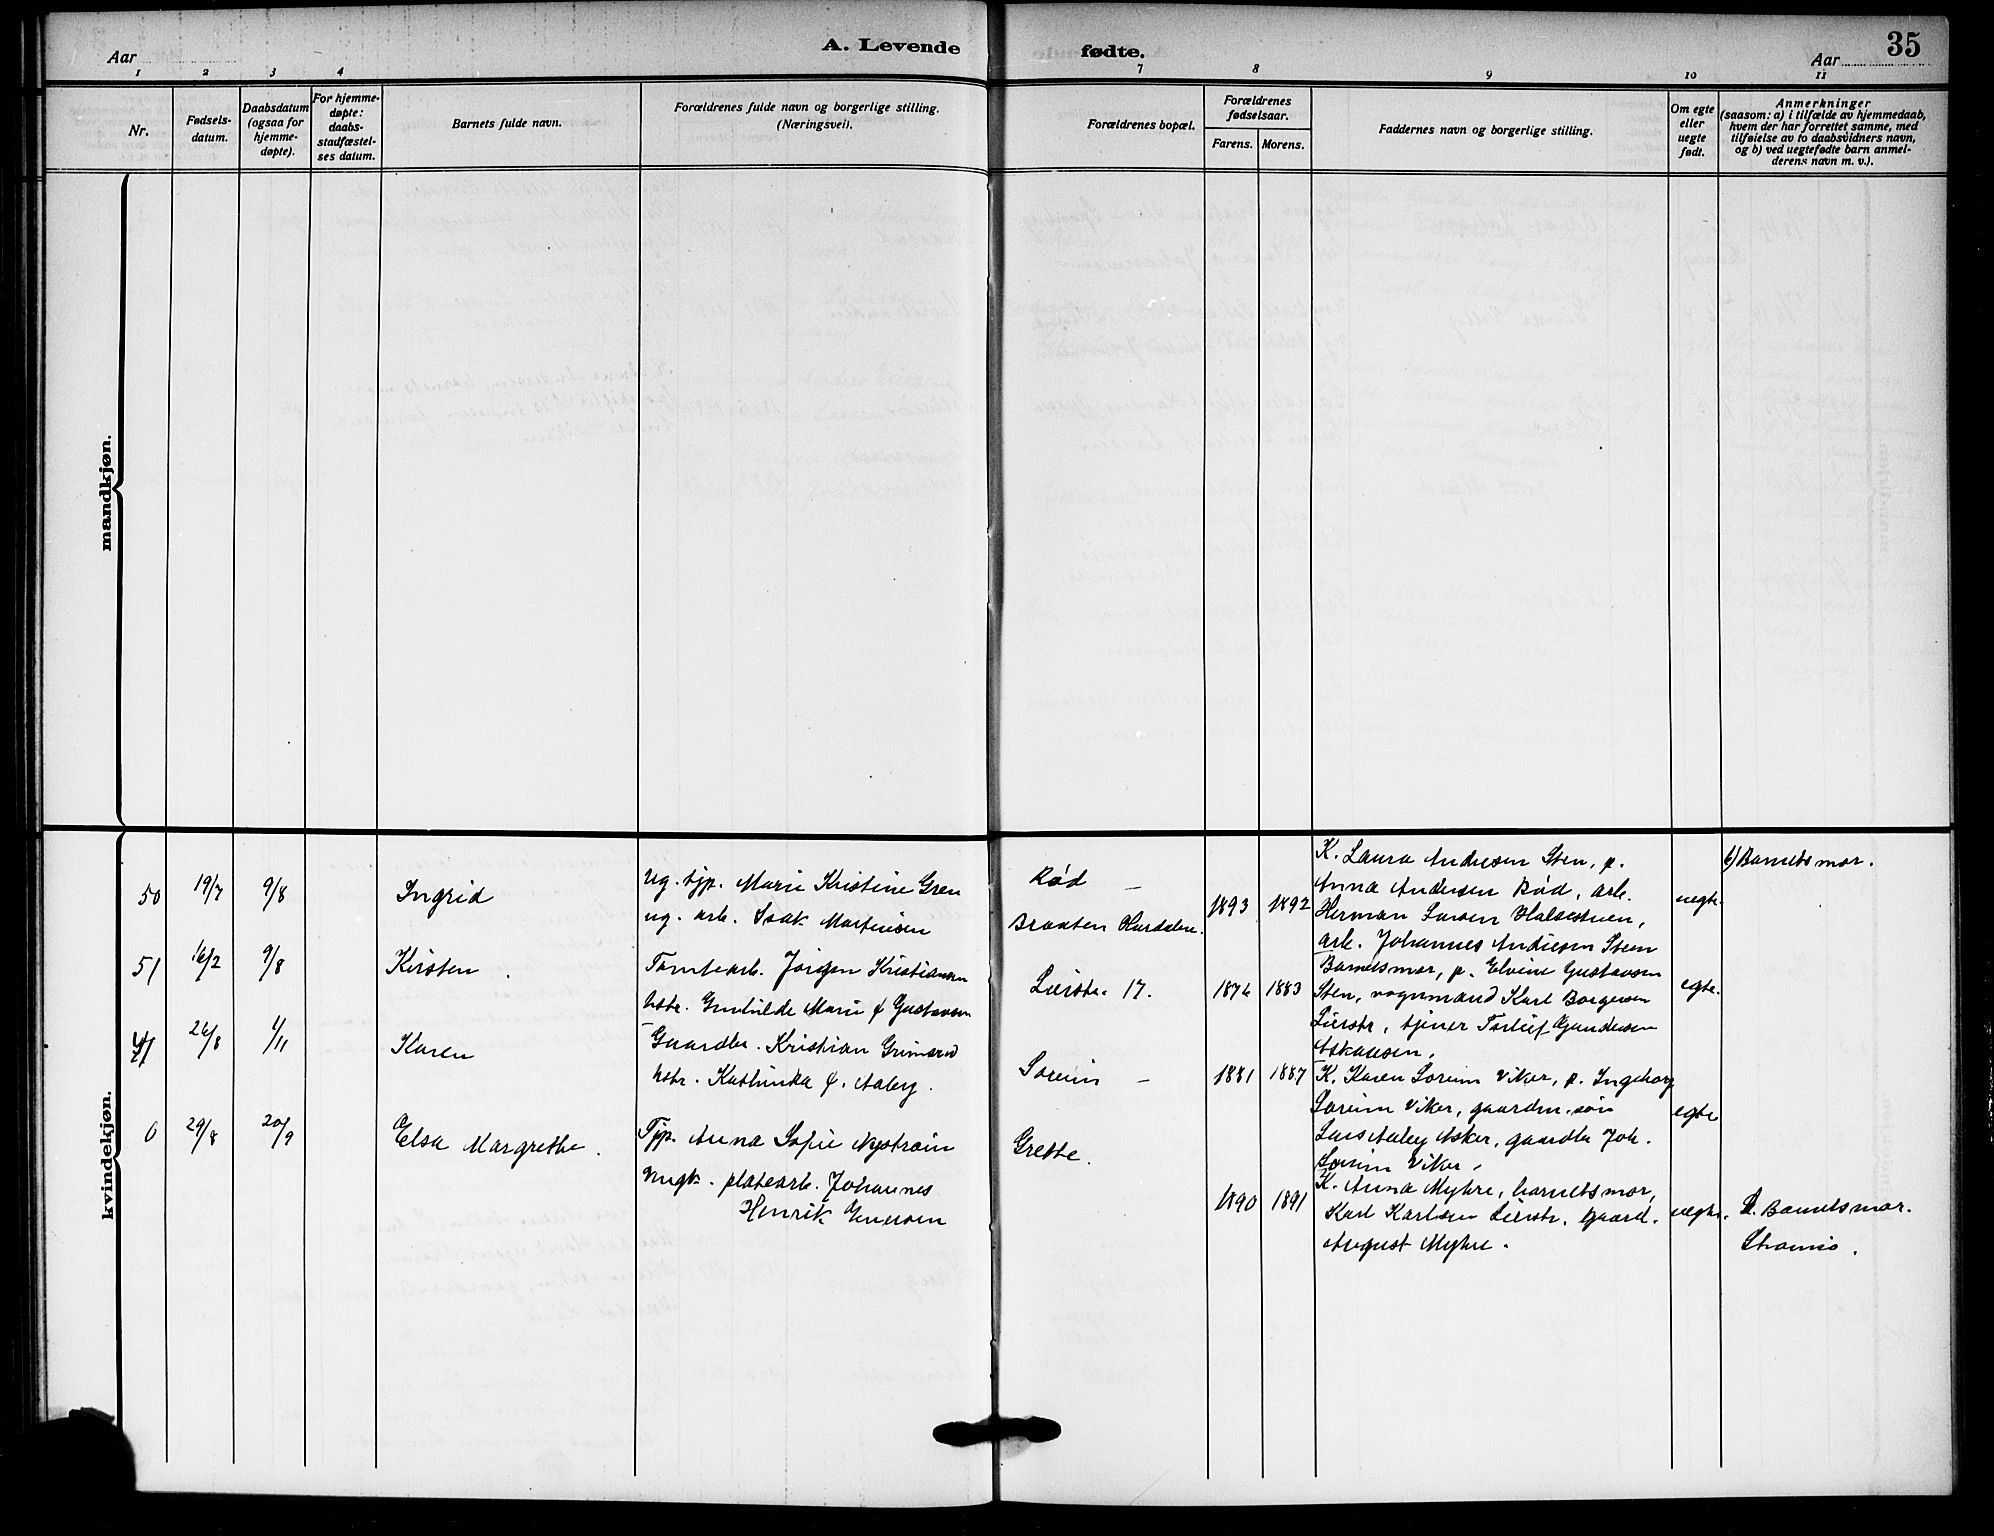 A. Levende fødte.
35
Aar
Aar
1 2 3 4 7 8 9 10 11
Nr.
Fødsels-
datum.
Daabsdatum
(ogsaa for
hjemme-
døpte).
For hjemme-
døpte:
daabs-
stadfæstel-
ses datum.
Barnets fulde navn.
Forældrenes fulde navn og borgerlige stilling.
(Næringsvei).
Forældrenes bopæl.
Forældrenes
fødselsaar.
Farens. Morens.
Faddernes navn og borgerlige stilling.
Om egte
eller
uegte
født.
Anmerkninger
(saasom: a) i tilfælde av hjemmedaab,
hvem der har forrettet samme, med
tilføielse av to daabsvidners navn,
og b) ved uegtefødte barn anmel-
derens navn m. v.).
mandkjøn.
kvindekjøn.
50 19/7 9/8 Ingrid
Ug. tjp. Marie Kristine Gren
ug. arb. Isak Martinsen
Rød —
Braaten Hurdalen.
1893 1892
K. Laura Andresen Sten, p.
Anna Andersen Rød, arb.
Herman Larsen Halsestuen,
arb. Johannes Andresen Steen
uegte.
b) Barnets mor.
51 16/2 9/8 Kirsten.
Tomtearb. Jörgen Kristiansen
hstr. Gunhilde Marie f. Gustavsen
Lierstr. 17.
1876 1883
Barnets mor, p. Elvine Gustavsen
Sten, vognmand Karl Borgersen
Lierstr, tjener Torleif Gundersen
Askausen.
egte.
26/8 1/11 Karen
Gaardbr. Kristian Grimsrud
hstr. Kathinka f. Aaby.
Soreim —
1881 1887
K. Karen Soreim Viker, p. Ingeborg
Soreim Viker, gaardm. søn
Lars Aaby Asker, gaardbr Joh.
Soreim Viker.
egte
0 29/8 20/9 Elsa Margrethe.
Tjp. Anna Sofie Nystrøm
Ungk. platearb. Johannes
Henrik Enersen
Grette.
1890 1891
K. Anna Myhre, barnets mor,
Karl Karlsen Lierstr. gaard.
August Myhre.
uegte.
b. Barnets mor.
Strømsø.